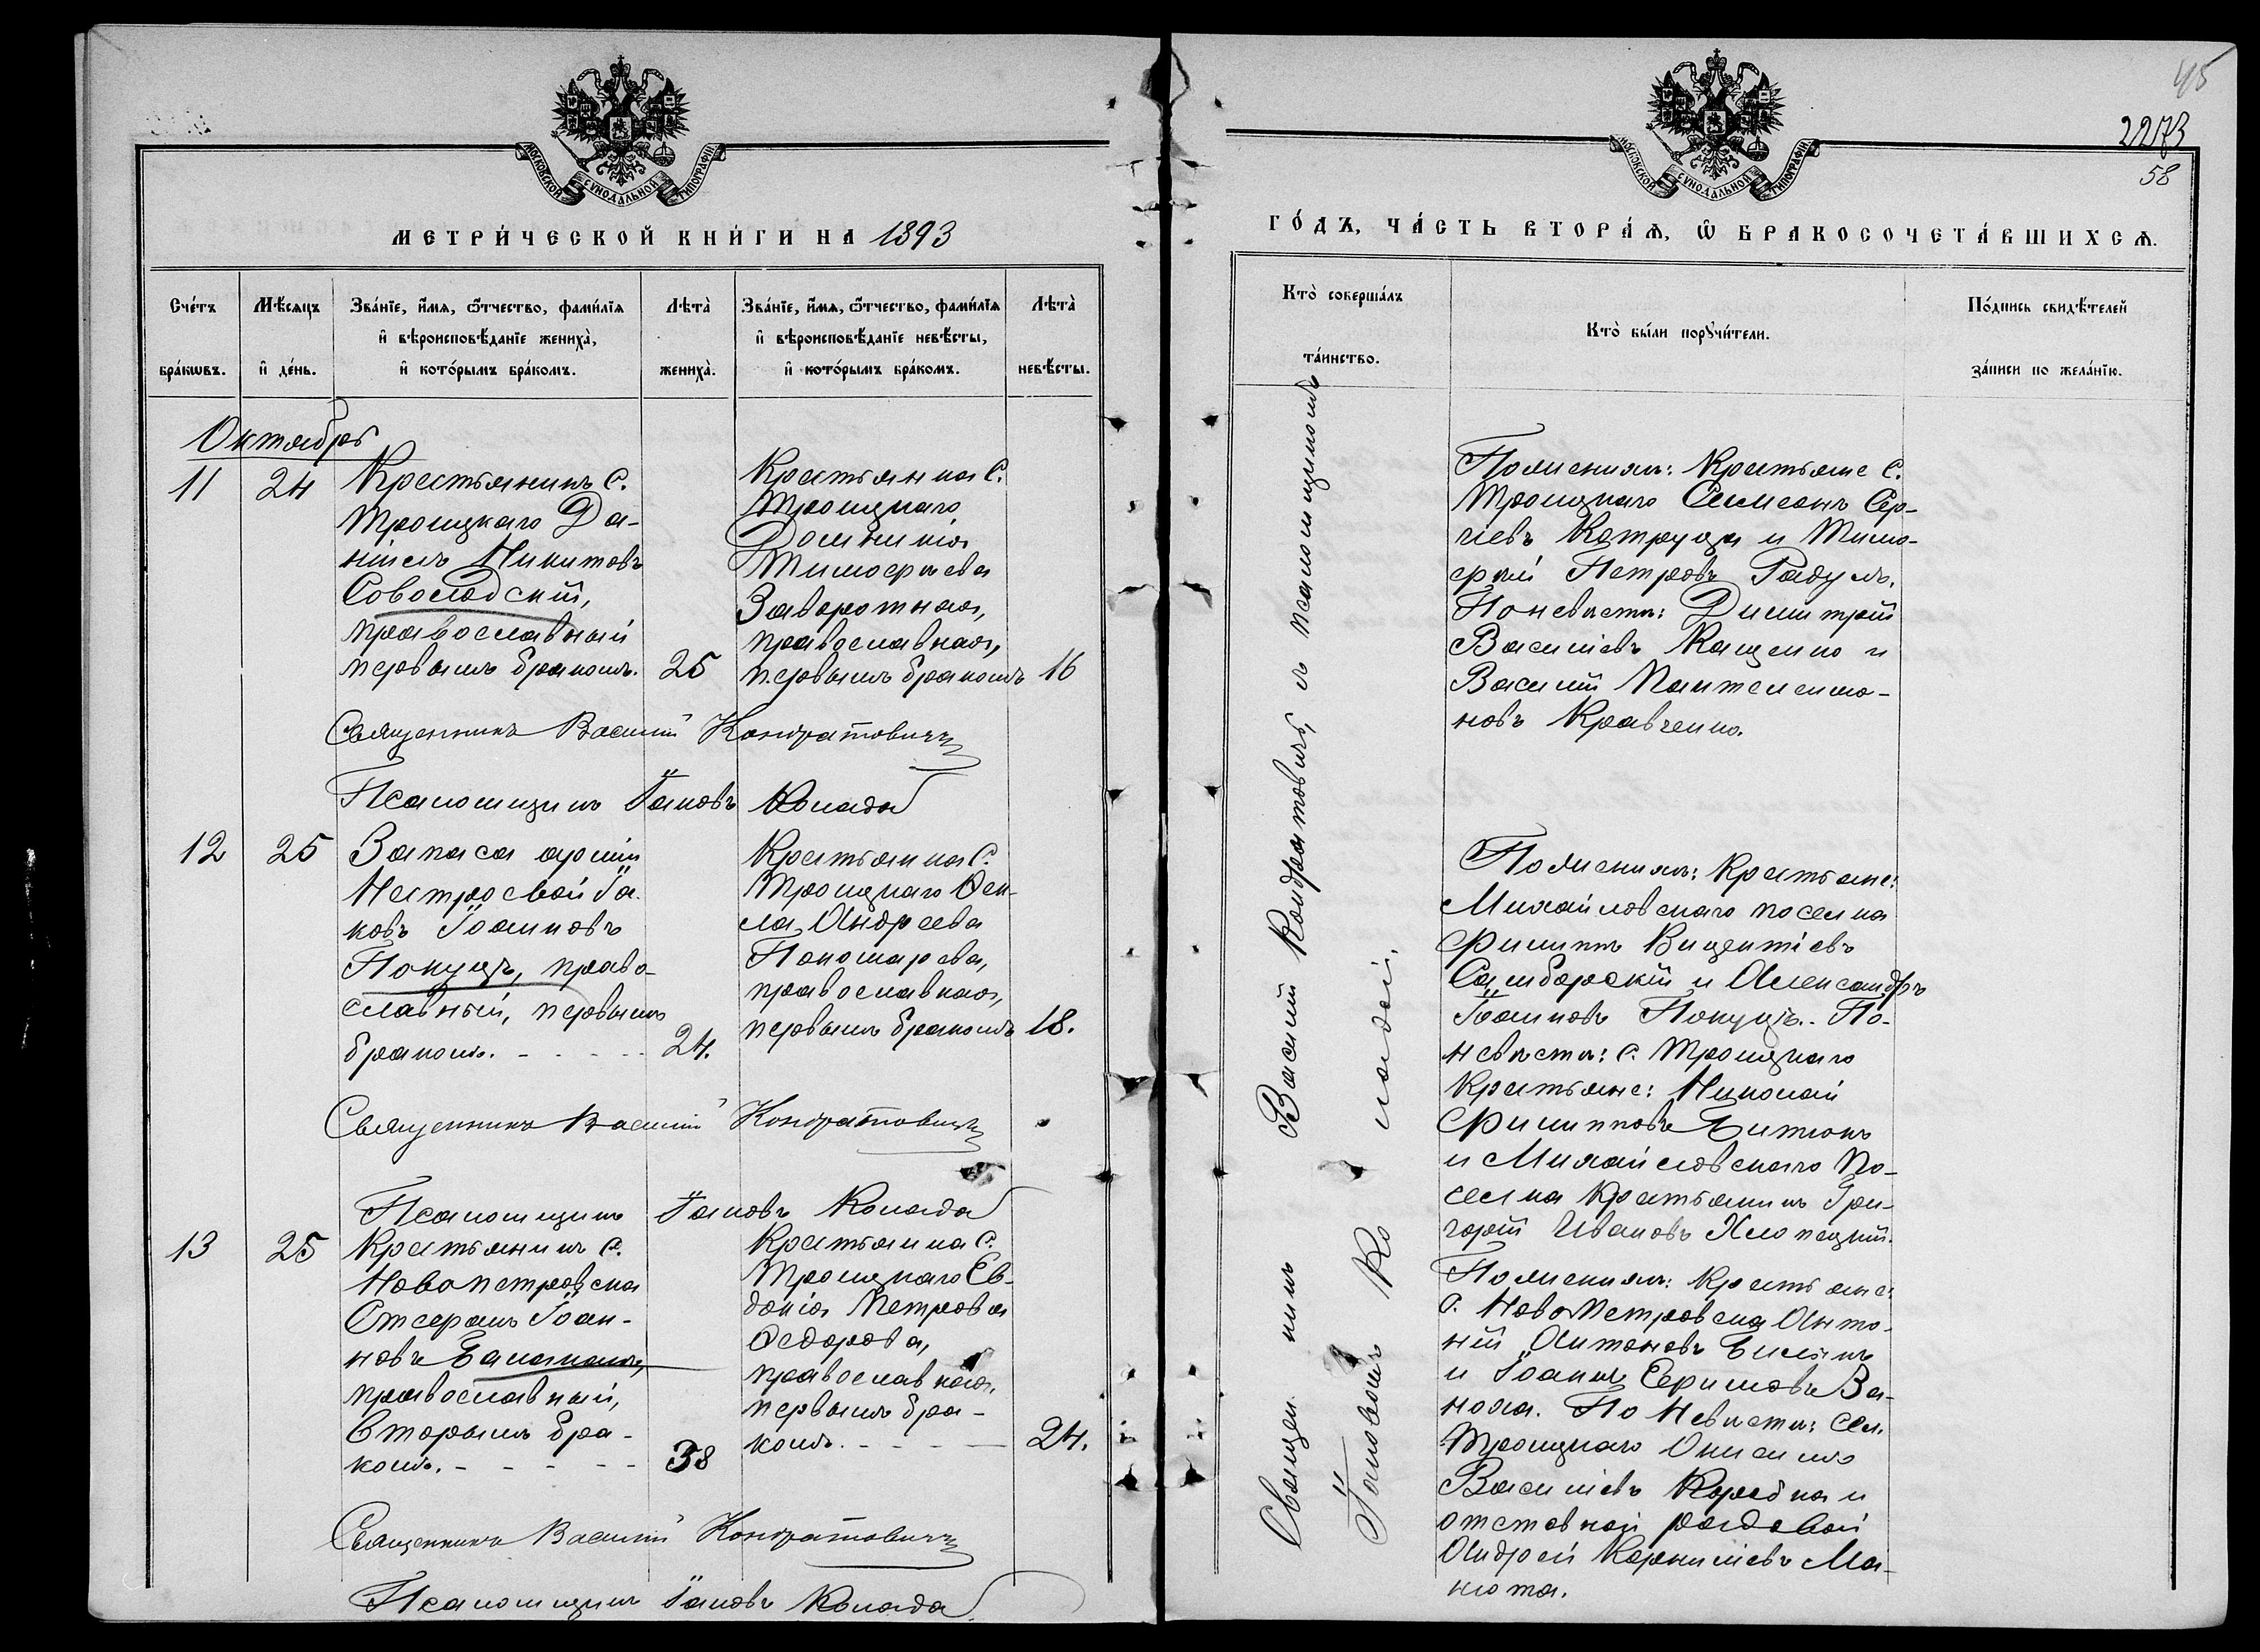 45
2273
58
МОСКОВСКОЙ СѴНОДАЛЬНОЙ ТИПОГРАФІИ
МЕТРИ́ЧЕСКОЙ КНИ́ГИ НА 1893
Сче́тъ бра́кѡвъ.
Мѣ́сяцъ и҆ де́нь.
Зва́нїе, и҆́мѧ, ѻ҆́тчество, фами́лїѧ
и҆ вѣроисповѣ́данїе жениха̀,
и҆ кото́рымъ бра́комъ.
Лѣта̀ жениха̀.
Зва́нїе, и҆́мѧ, ѻ҆́тчество, фами́лїѧ
и҆ вѣроисповѣ́данїе невѣ́сты,
и҆ кото́рымъ бра́комъ.
Лѣта̀ невѣ́сты.
Октябрь
11
24
Крестьянинъ с.
Троицкаго Да-
ніилъ Никитовъ
Соволодскій,
православный
первымъ бракомъ.
25
Крестьянка с.
Троицкаго
Домникія
Тимофѣева
Заворотная,
православная,
первымъ бракомъ
16
Священникъ Василій Кондратовичъ
Псаломщикъ Іаковъ Колада
12
25
Запаса арміи
Нестроевой Іа-
ковъ Іоанновъ
Покуцъ, право-
славный, первымъ
бракомъ.
24.
Крестьянка с.
Троицкаго Ѳек-
ла Андреева
Пономарева,
православная,
первымъ бракомъ
18.
Священникъ Василій Кондратовичъ
Псаломщикъ Іаковъ Колада
13
25
Крестьянинъ с.
Новопетровска
Стефанъ Іоан-
новъ
православный,
Вторымъ бра-
комъ.
38
Крестьянка с.
Троицкаго Ев-
докія Петрова
Ѳедорова,
православная,
первымъ бра-
комъ.
24.
Священникъ Василій Кондратовичъ
Псаломщикъ Іаковъ Колада
МОСКОВСКОЙ СѴНОДАЛЬНОЙ ТИПОГРАФІИ
ГО́ДЪ, ЧА́СТЬ ВТОРА́Ѧ, Ѽ БРАКОСОЧЕТА́ВШИХСѦ.
Кто̀ соверша́лъ
та́инство.
Кто̀ бы́ли порꙋчи́тели.
По́дпись свидѣ́телей
за́писи по жела́нїю.
Священникъ Василій Кондратовичъ, съ псаломщикомъ
Іаковомъ Коладой.
По женихѣ: Крестьяне с.
Троицкаго Симеонъ Сер-
гіевъ Катруца и Тимо-
фѣй Петровъ Радулъ.
По невѣстѣ: Димитрій
Василіевъ Кащенко и
Василій Пантелеимо-
новъ Кравченко.
По женихѣ: Крестьяне:
Михайловскаго поселка
Филиппъ Викентіевъ
Самборскій и Александръ
Іоанновъ Покуцъ. По-
невѣстѣ: с. Троицкаго
Крестьяне: Николай
Филипповъ
и Михайловскаго По-
селка Крестьянинъ Гри-
горій Ивановъ Хлопецкій.
По женихѣ: Крестьяне:
с. НовоПетровска Анто-
ній Антоновъ
и Іоаннъ Ефимовъ Ва-
ноха. По Невѣстѣ: Сел.
Троицкаго Онисимъ
Василіевъ Коробка и
отставной рядовой
Андрей Корниліевъ Ма-
нюта.